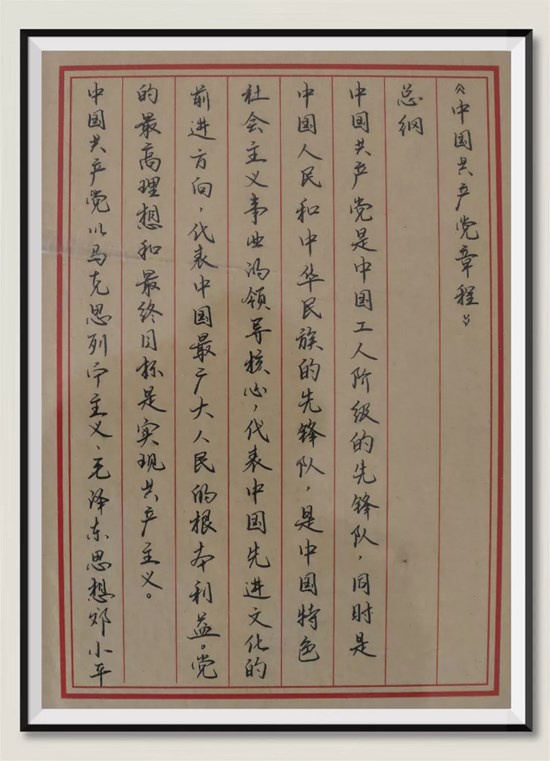 《中国共产党章程》
总纲
中国共产党是中国工人阶级的先锋队，同时是
中国人民和中华民族的先锋队，是中国特色
社会主义事业的领导核心，代表中国先进文化的
前进方向，代表中国最广大人民的根本利益。党
的最高理想和最终目标是实现共产主义。
中国共产党以马克思列宁主义、毛泽东思想邓小平